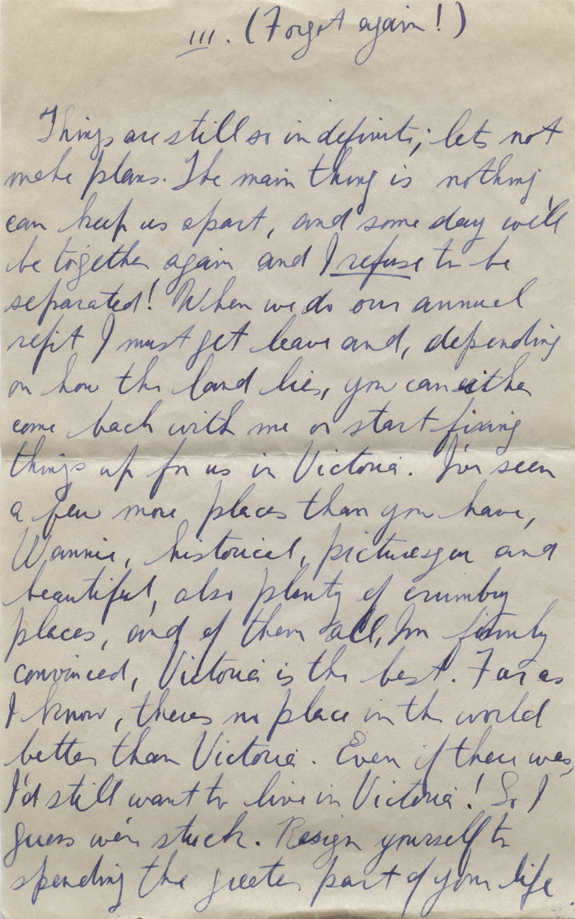 III. (Forgot again!)
Things are still so indefinite; lets not
make plans. The main thing is nothing
can keep us apart, and some day we'll
be together again and I refuse to be
separated! When we do our annual
refit I must get leave and, depending
on how the land lies, you can either
come back with me or start fixing
things up for us in Victoria. I've seen
a few more places than you have,
Wannie, historical, picturesque and
beautiful, also plenty of crumby
places, and of them all, I'm firmly
convinced, Victoria is the best. Far as
I know, theres no place in the world
better than Victoria. Even if there was,
I'd still want to live in Victoria! So I
guess we're stuck. Resign yourself to
spending the greater part of your life